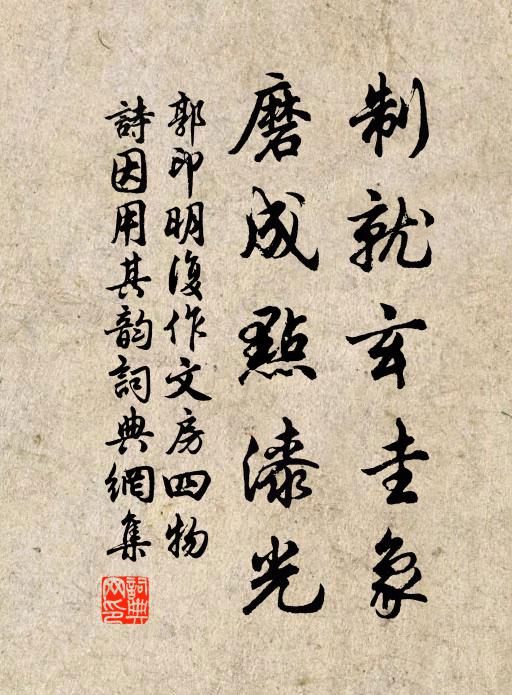 制就玄圭象
磨成點漆光
郭印明復作文房四物
詩因用其韵詞典網集
詞典網印